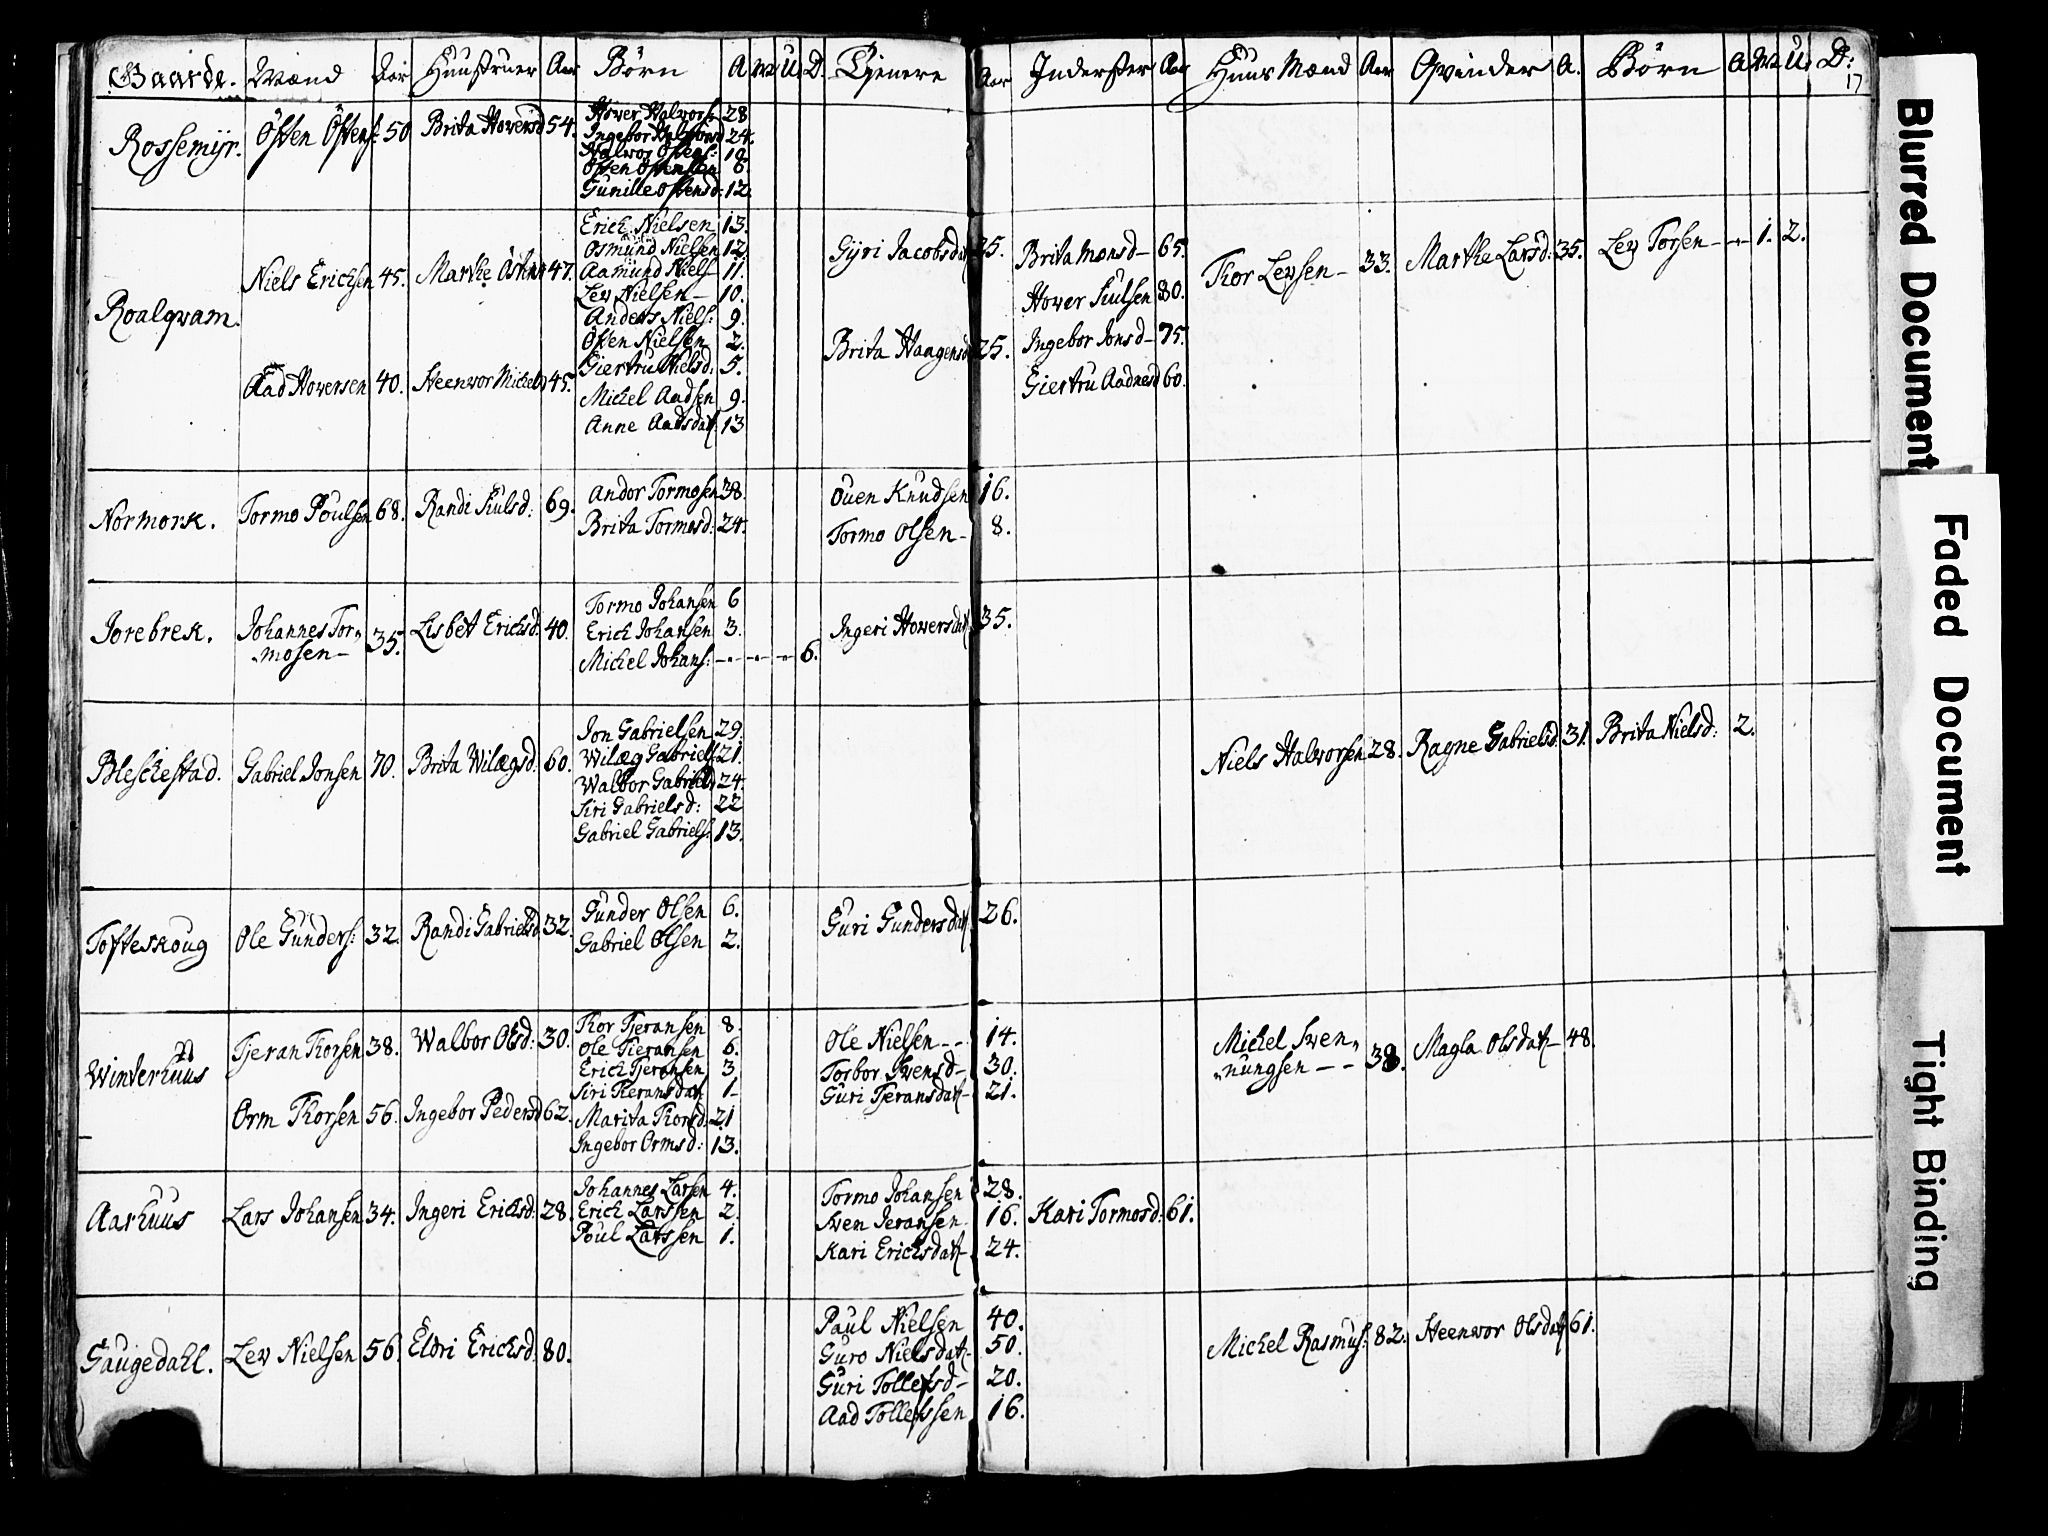 Gaarde. Mænd Aar Huustruer Aar Börn A M U D. Tjenere Aar Inderster Aar Huus Mænd Aar Qvinder A. Börn A M U. D:
17
Rossemyr. Östen Östens: 50 Brita Hoversd 54. Hover Halvors: 28
Ingebor Halvorsd 24.
Halvor Östens: 18
Östen Östensen 6.
Gunille Östensd: 12.
Roalqvam.
Niels Erichsen 45. Marthe 47. Erich Nielsen 13. Gyri Jacobsdat 25. Brita Monsd- 65. Thor Levsen- 33. Marthe Larsd: 35. Lev Torsen- 1. 2.
Osmund Nielsen 12.
Aamund Niels 11.
Lev Nielsen- 10. Hover Siulsen 80.
Anders Niels: 9.
Östen Nielsen 2. Brita Haagensd 25. Ingebor Jonsd- 75.
Giertru Nielsd: 5.
Aad Hoversen 40. Steenvor Michelsd 45. Michel Aadsen 9. Giertru Aadnesd 60.
Anne Aadsdat: 13
Normork. Tormo Poulsen 68. Randi Siulsd: 69. Andor Tormosen 38. Ouen Knudsen 16.
Brita Tormosd: 24. Tormo Olsen- 8.
Jorebrek. Johannes Tor„ „mosen- 35. Lisbet Erichsd: 40. Tormo Johansen 6 Ingeri Hoversdat 35.
Erich Johansen 3.
Michel Johans: - - - 6.
Bleschestad. Gabriel Jonsen 70. Brita Wilægsd: 60. Jon Gabrielsen 29. Niels Halvorsen 28. Ragne Gabrielsd. 31. Brita Nielsd: 2.
Wilæg Gabriels 21.
Walbor Gabrielsd 24.
Siri Gabrielsd: 22
Gabriel Gabriels: 13.
Tofteskoug Ole Gunders: 32. Randi Gabrielsd. 32. Gunder Olsen 6. Guri Gundersdat 26.
Gabriel Olsen 2.
Winterhuus
Tjeran Thorsen 38. Walbor Olsd: 30. Thor Tjeransen 8. Ole Nielsen-- 14. Michel Sven„ „nungsen-- 38. Magla Olsdatt- 48.
Ole Tieransen 6.
Erich Tjeransen 3 Torbor Svensd- 30.
Siri Tieransdat 1- Guri Tjeransdatt- 21.
Orm Thorsen 56. Ingebor Pedersd 62. Marita Thorsd: 21
Ingebor Ormsd: 13.
Aarhuus Lars Johansen 34. Ingeri Erichsd: 28. Johannes Larsen 4. Tormo Johansen 28. Kari Tormosd: 61.
Erich Larssen 2. Sven Jeransen. 16.
Poul Larssen 1. Kari Erichsdatt- 24.
Gaugedahl. Lev Nielsen 56. Eldri Erichsd: 80. Paul Nielsen 40. Michel Rasmus: 82. Steenvor Olsdatt 61.
Guro Nielsdatt- 50.
Guri Tollefsd- 20.
Aad Tollefssen 16.
Blurred Document
Faded Document
Tight Binding